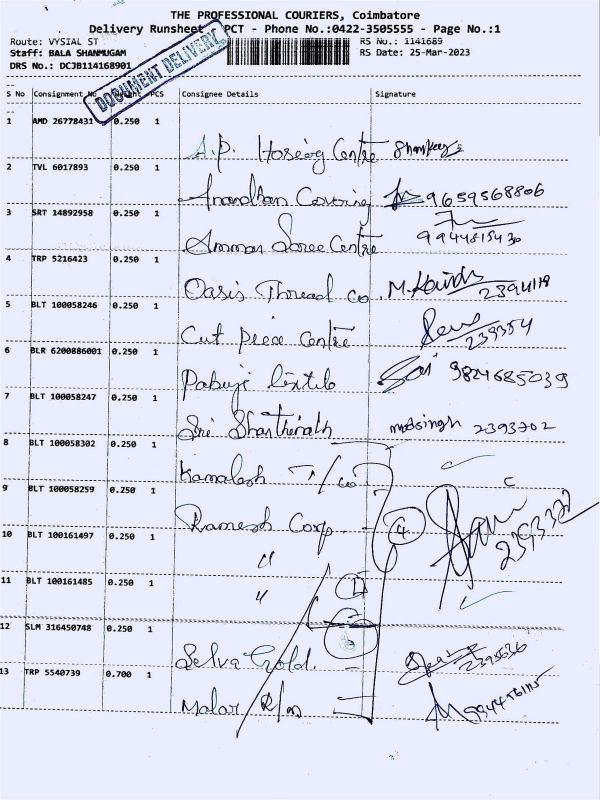 THE PROFESSIONAL COURIERS, Coimbatore
Delivery Runsheet PCT - Phone No.:0422-3505555 - Page No.:1
Route: VYSIAL ST RS No.: 1141689
Staff: BALA SHANMUGAM RS Date: 25-Mar-2023
DRS No.: DCJB114168901
DOCUMENT DELIVERY
S No Consignment No PCS Consignee Details Signature
1 AMD 26778431 0.250 1 A.P. Hosiery Centre
2 TVL 6017893 0.250 1 Anandhan Covering 9659568806
3 SRT 14892958 0.250 1 Amman Saree Centre 9944815430
4 TRP 5216423 0.250 1 Oasis Thread Co. 2394118
5 BLT 100058246 0.250 1 Cut Piece Centre 239354
6 BLR 6200886001 0.250 1 Pabuji 9824685039
7 BLT 100058247 0.250 1 Sri 2393702
8 BLT 100058302 0.250 1 Kamalesh
9 BLT 100058259 0.250 1 Ramesh Corp. 4
10 BLT 100161497 0.250 1 "
11 BLT 100161485 0.250 1 " 1
12 SLM 316450748 0.250 1 Selva Gold. 2395636
13 TRP 5540739 0.700 1 Malar